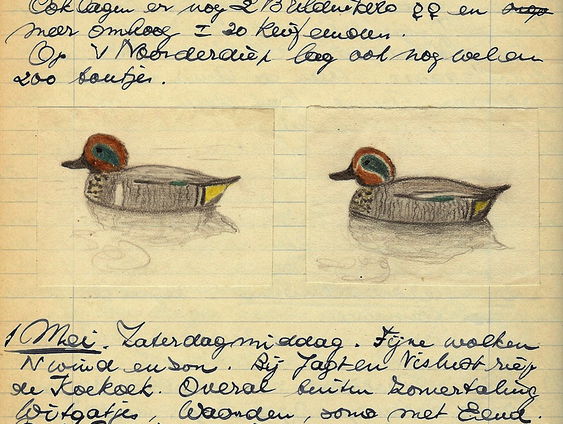 Ook lagen er nog 2 Brilduikers ♀♀ en
meer omhoog ± 20 Kuifeenden.
Op 't Noorderdiep lag ook nog wel een
200 tontjes.
1 Mei. Zaterdagmiddag. Fijne wolken
N wind en zon. Bij Jagt en Vishut riep
de Koekoek. Overal buiten Zomertaling
Witgatjes, Waarden, soms met Eend.